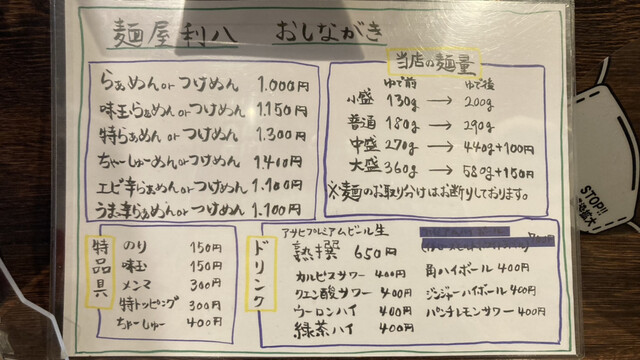 麺屋利八 おしながき
らぁめんorつけめん 1.000円
味玉らぁめんorつけめん 1.150円
特らぁめんorつけめん 1.300円
ちゃーしゅーめんorつけめん 1.400円
エビ辛らぁめんorつけめん 1.100円
うま辛らぁめんorつけめん 1.100円
当店の麺量
ゆで前 ゆで後
小盛 130g → 200g
普通 180g → 290g
中盛 270g → 440g+100円
大盛 360g → 580g+150円
※麺のお取り分けはお断りしております。
特品具
のり 150円
味玉 150円
メンマ 300円
特トッピング 300円
ちゃーしゅー 400円
ドリンク
アサヒプレミアムビール生
熟撰 650円
カルピスサワー 400円
クエン酸サワー 400円
ウーロンハイ 400円
緑茶ハイ 400円
角ハイボール 400円
ジンジャーハイボール 400円
パンチレモンサワー 400円
STOP!!